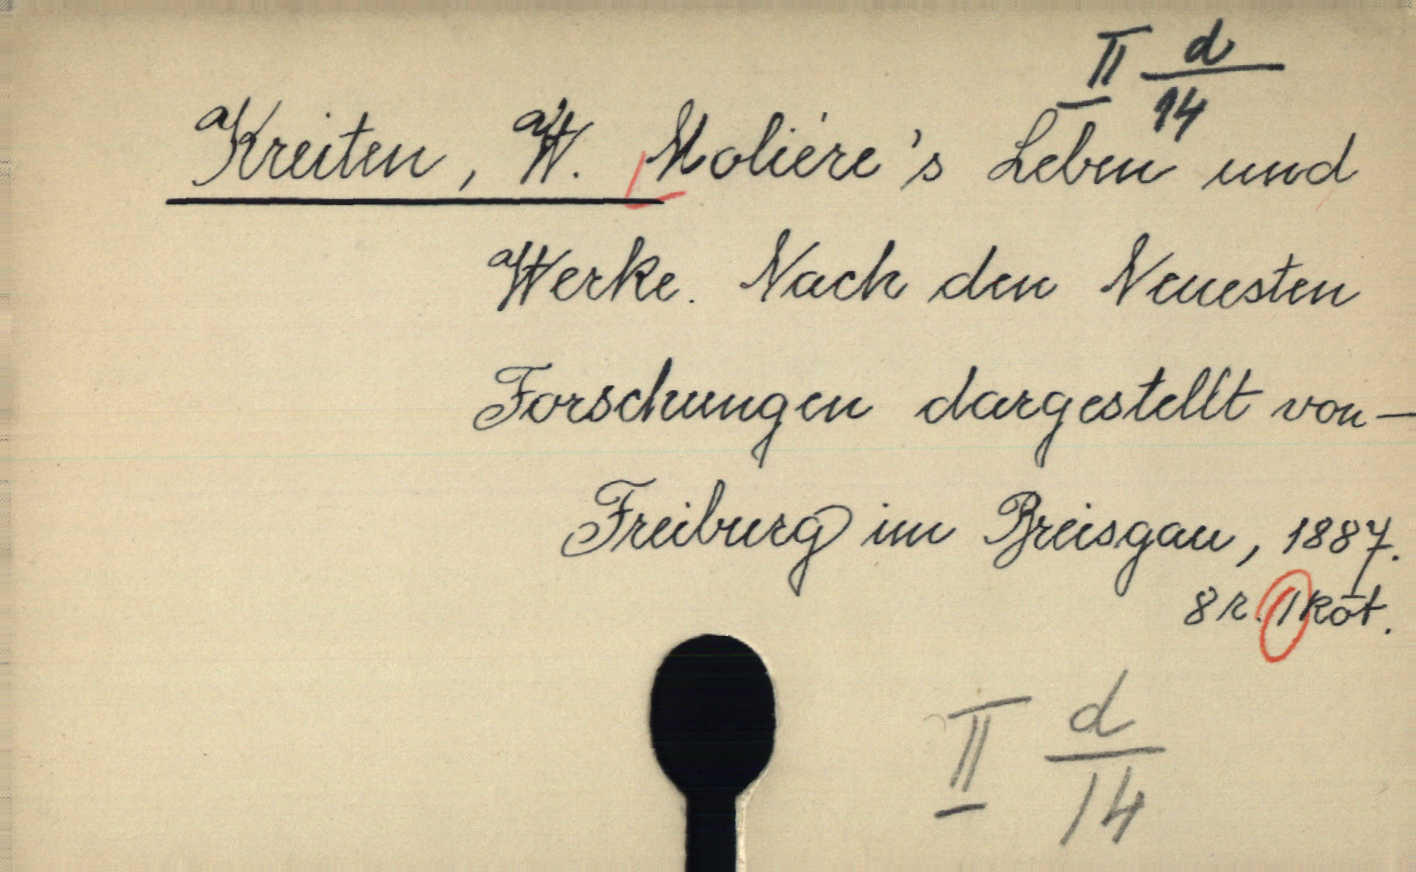 II d/14
Kreiten, W. Moliére's Leben und
Werke. Nach den Neuesten
Forschungen dargestellt von —
Freiburg im Breisgau, 1887.
8 r. 1 köt.
II d/14